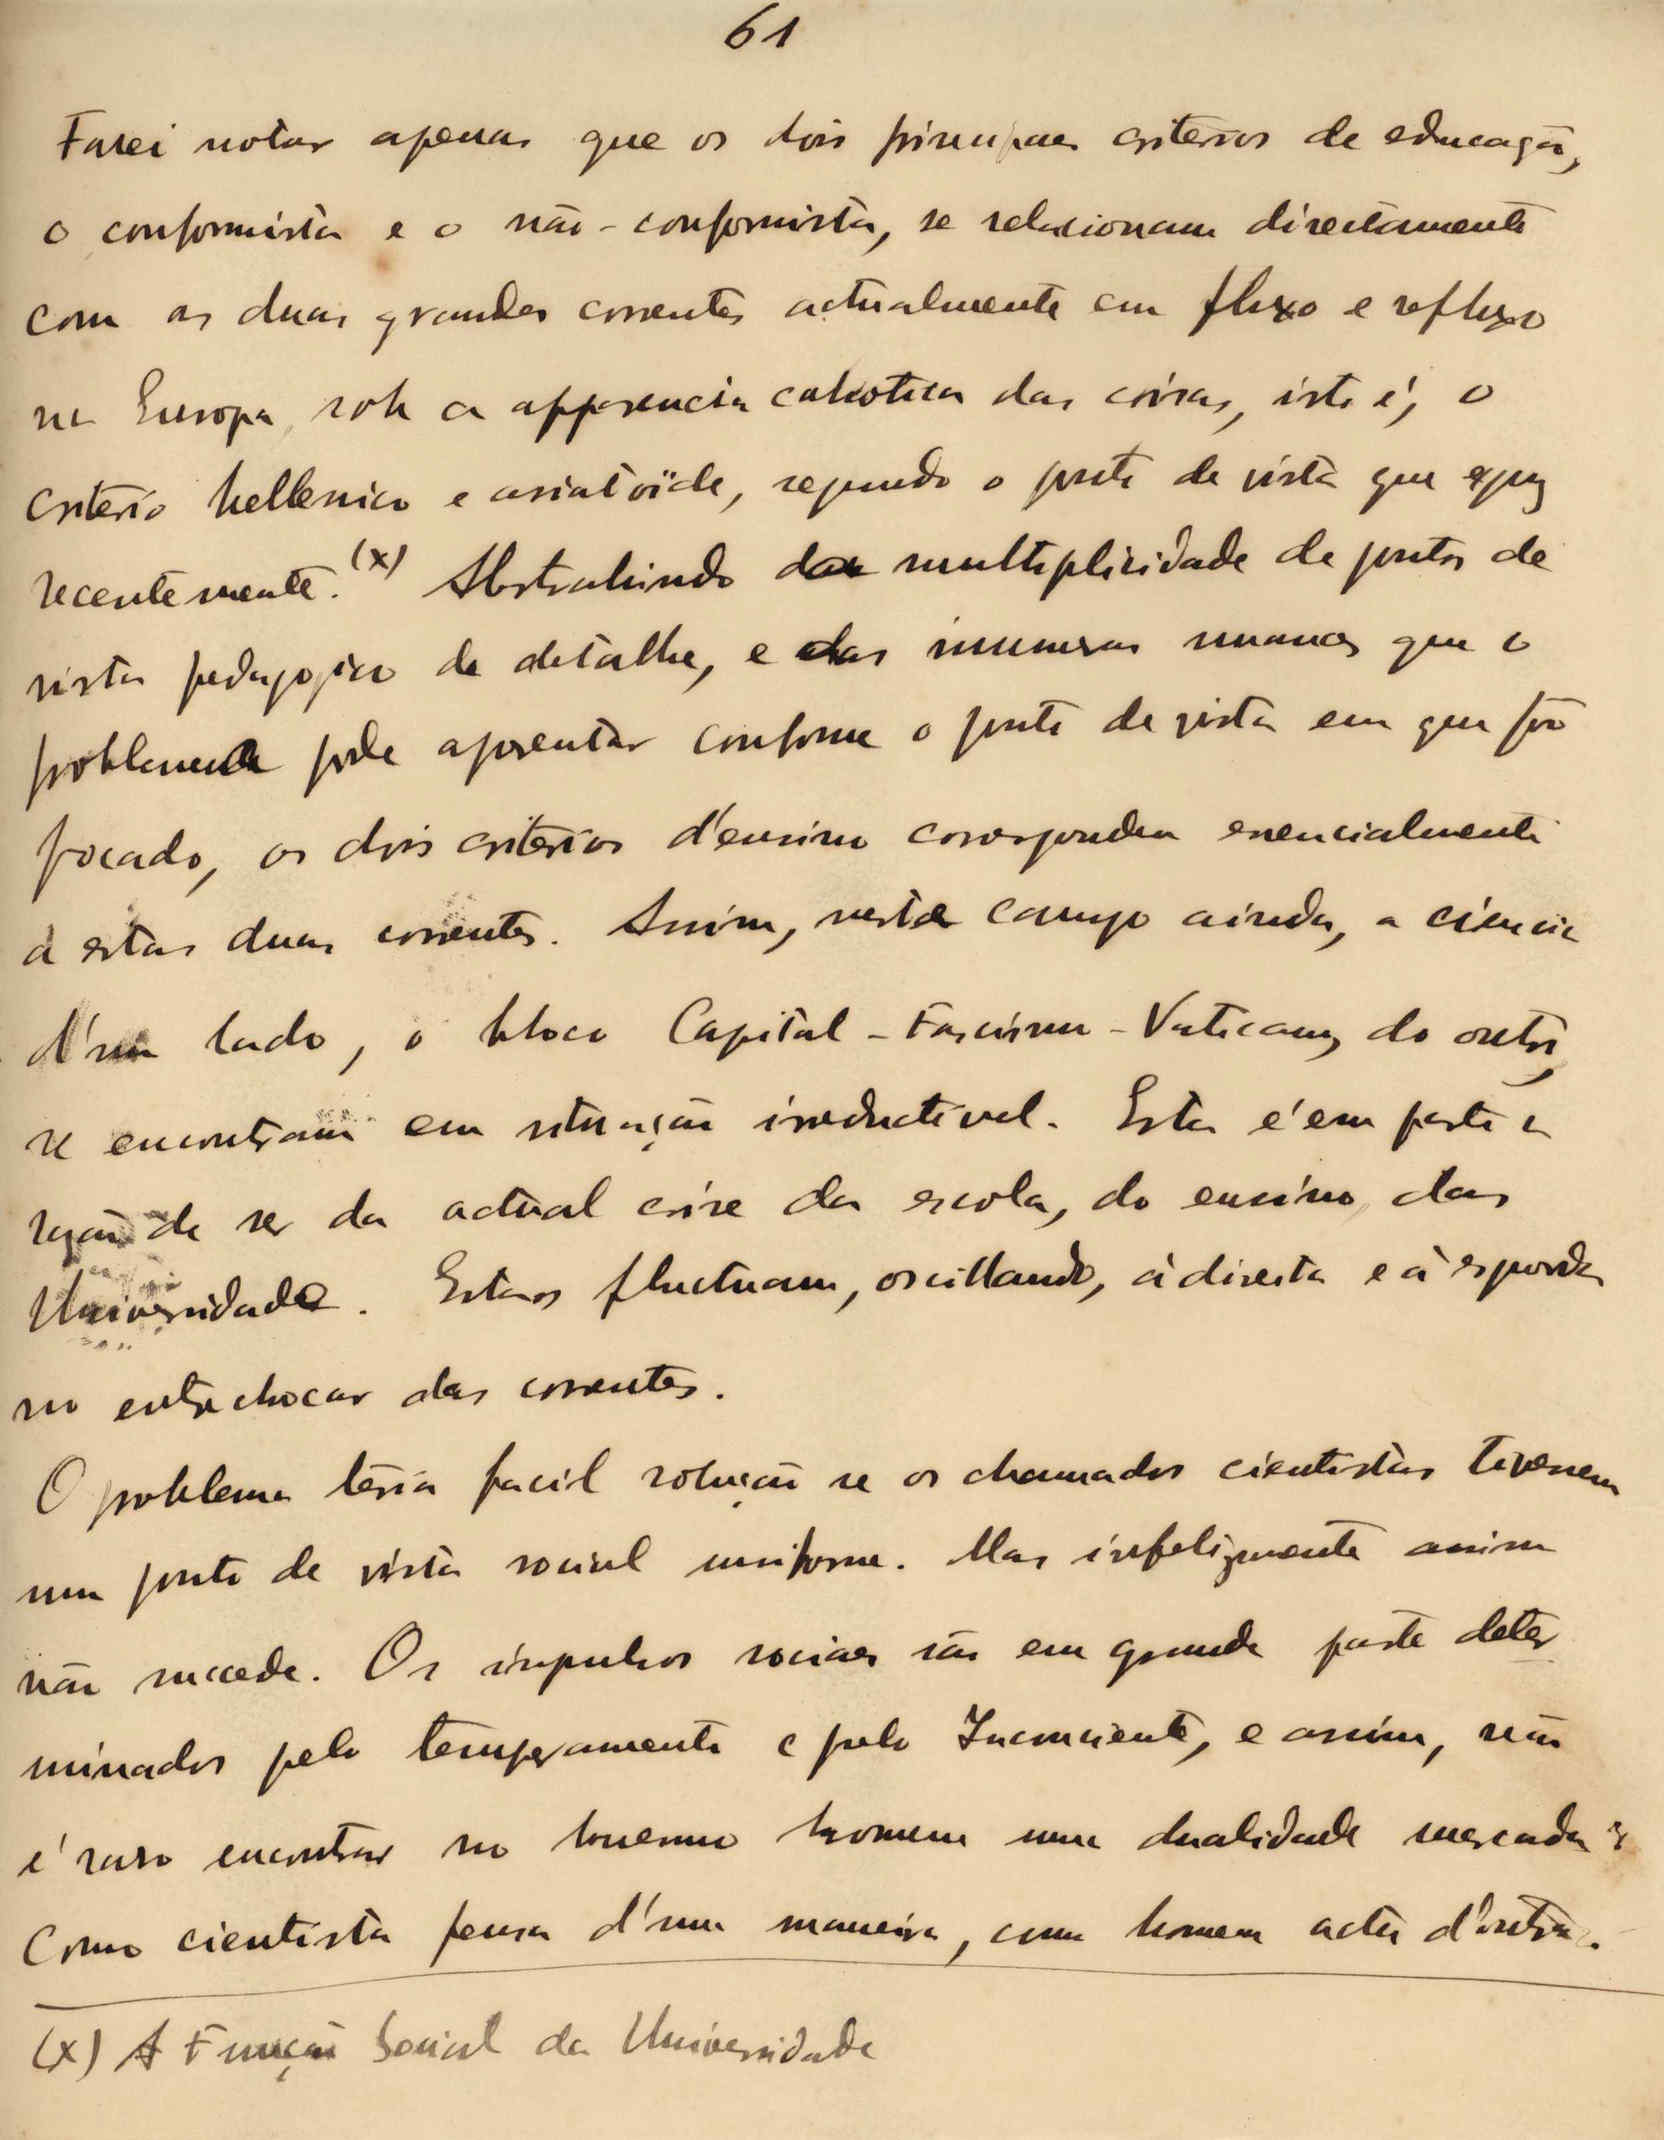 61
Farei notar apenas que os dois principaes criterios de educação,
o conformista e o não-conformista, se relacionam directamente
com as duas grandes correntes actualmente em fluxo e refluxo
na Europa, sob a apparencia cahotica das coisas, isto é, o
criterio hellenico e asiatoïde, segundo o ponto de vista que expuz
recentemente. (x) Abstrahindo da multiplicidade de pontos de
vista pedagogico de detalhe, e das inumeras nuances que o
problema pode apresentar conforme o ponto de vista em que fôr
focado, os dois criterios d'ensino correspondem essencialmente
a estas duas correntes. Assim, neste campo ainda, a ciencia
d'um lado, o bloco Capital-Fascismo-Vaticano, do outro,
se encontram em situação irreductivel. Esta é em parte a
razão de ser da actual crise da escola, do ensino, das
Universidade. Estas fluctuam, oscillando, á direita e á esquerda
no entrechocar das correntes.
O problema teria facil solução se os chamados cientistas tivessem
um ponto de vista social uniforme. Mas infelizmente assim
não succede. Os impulsos sociaes são em grande parte deter
minados pelo temperamento e pelo Inconsciente, e assim, não
é raro encontrar no homem uma dualidade marcada:
Como cientista pensa d'uma maneira, como homem actua d'outra.
(x) A Função Social da Universidade